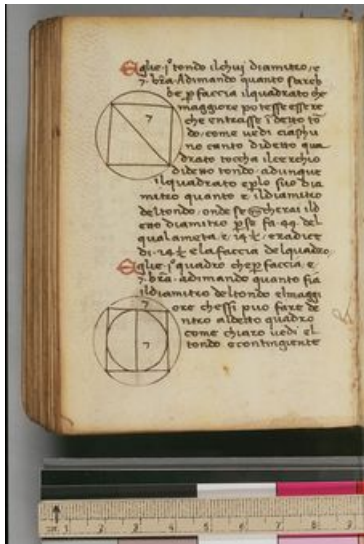 Eglie .j°. tondo ilchui diamitro, e
7. bra. Adimando quanto sarebe
be p faccia ilquadrato che
maggiore potesse essere
che entrasse ī detto tō
do: come uedi ciaphu
no canto didetto qua
drato toccha ilcerchio
didetto tondo. adunque
ilquadrato eplo suo dia
mitro quanto e ildiamitro
deltondo. onde se cherai ild
etto diamitro p se fa .49. del
qual ameta. e. 24 ½. e radice
di. 24 ½ e la faccia delquadro
Eglie .j°. quadro che p faccia, e
7. bra. adimando quanto fia
ildiamitro deltondo elmaggi
ore chessi puo fare de
ntro aldetto quadro
come chiaro uedi el
tondo econtingiente
7
7
7
1 2 3 4 5 6 7 8 9